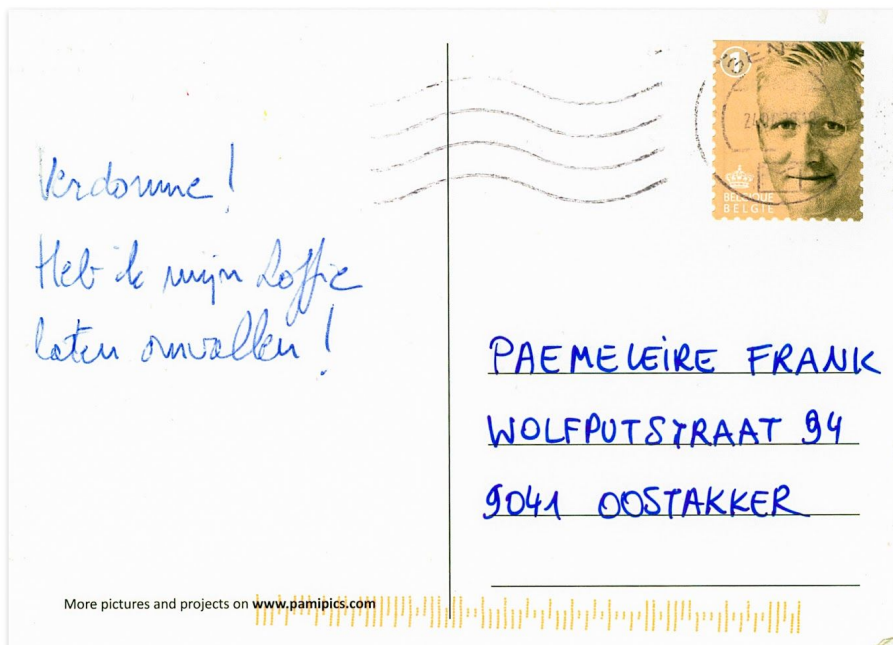 Verdomme!
Heb ik mijn koffie
laten omvallen!
GEN
1
BELGIQUE
BELGIË
PAEMELEIRE FRANK
WOLFPUTSTRAAT 94
9041 OOSTAKKER
More pictures and projects on www.pamipics.com